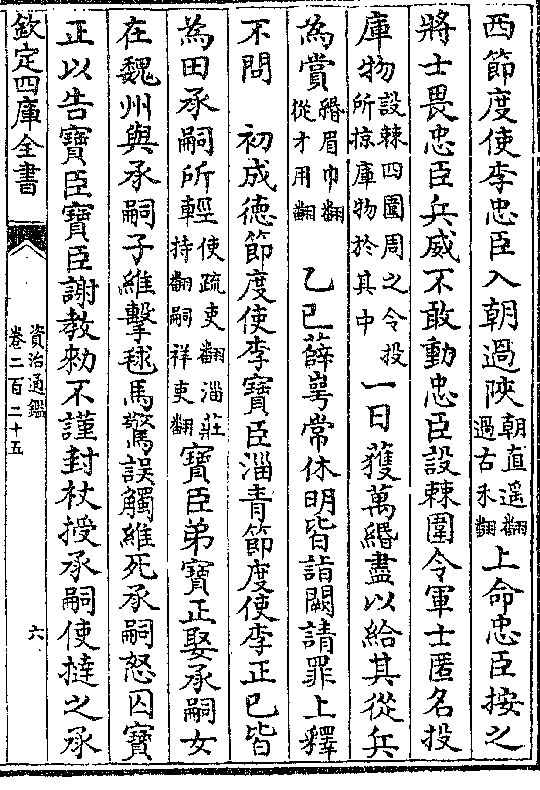 西節度使李忠臣入朝過陝朝直遥翻過古禾翻上命忠臣按之
將士畏忠臣兵威不敢動忠臣設棘圍令軍士匿名投
庫物設棘四圍周之令投所掠庫物於其中一日獲萬緡盡以給其從兵
為賞緡眉巾翻從才用翻乙巳薛㟧常休明皆詣闕請罪上釋
不問　初成德節度使李寶臣淄青節度使李正已皆
為田承嗣所輕使疏吏翻淄莊持翻嗣祥吏翻寶臣弟寶正娶承嗣女
在魏州與承嗣子維擊毬馬驚誤觸維死承嗣怒囚寶
正以告寶臣寶臣謝教勑不謹封杖授承嗣使撻之承
欽定四庫全書
資治通鑑
卷二百二十五
六